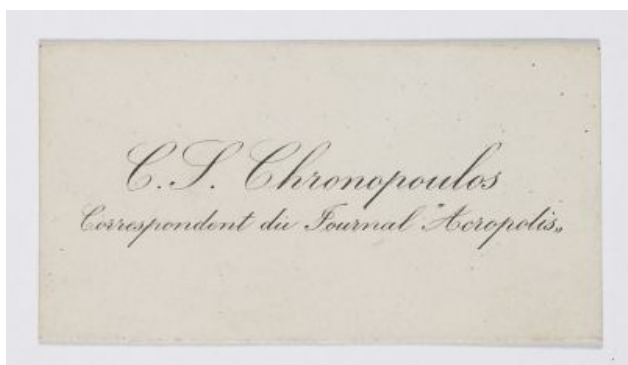 C. S. Chronopoulos
Correspondent du Journal "Acropolis„